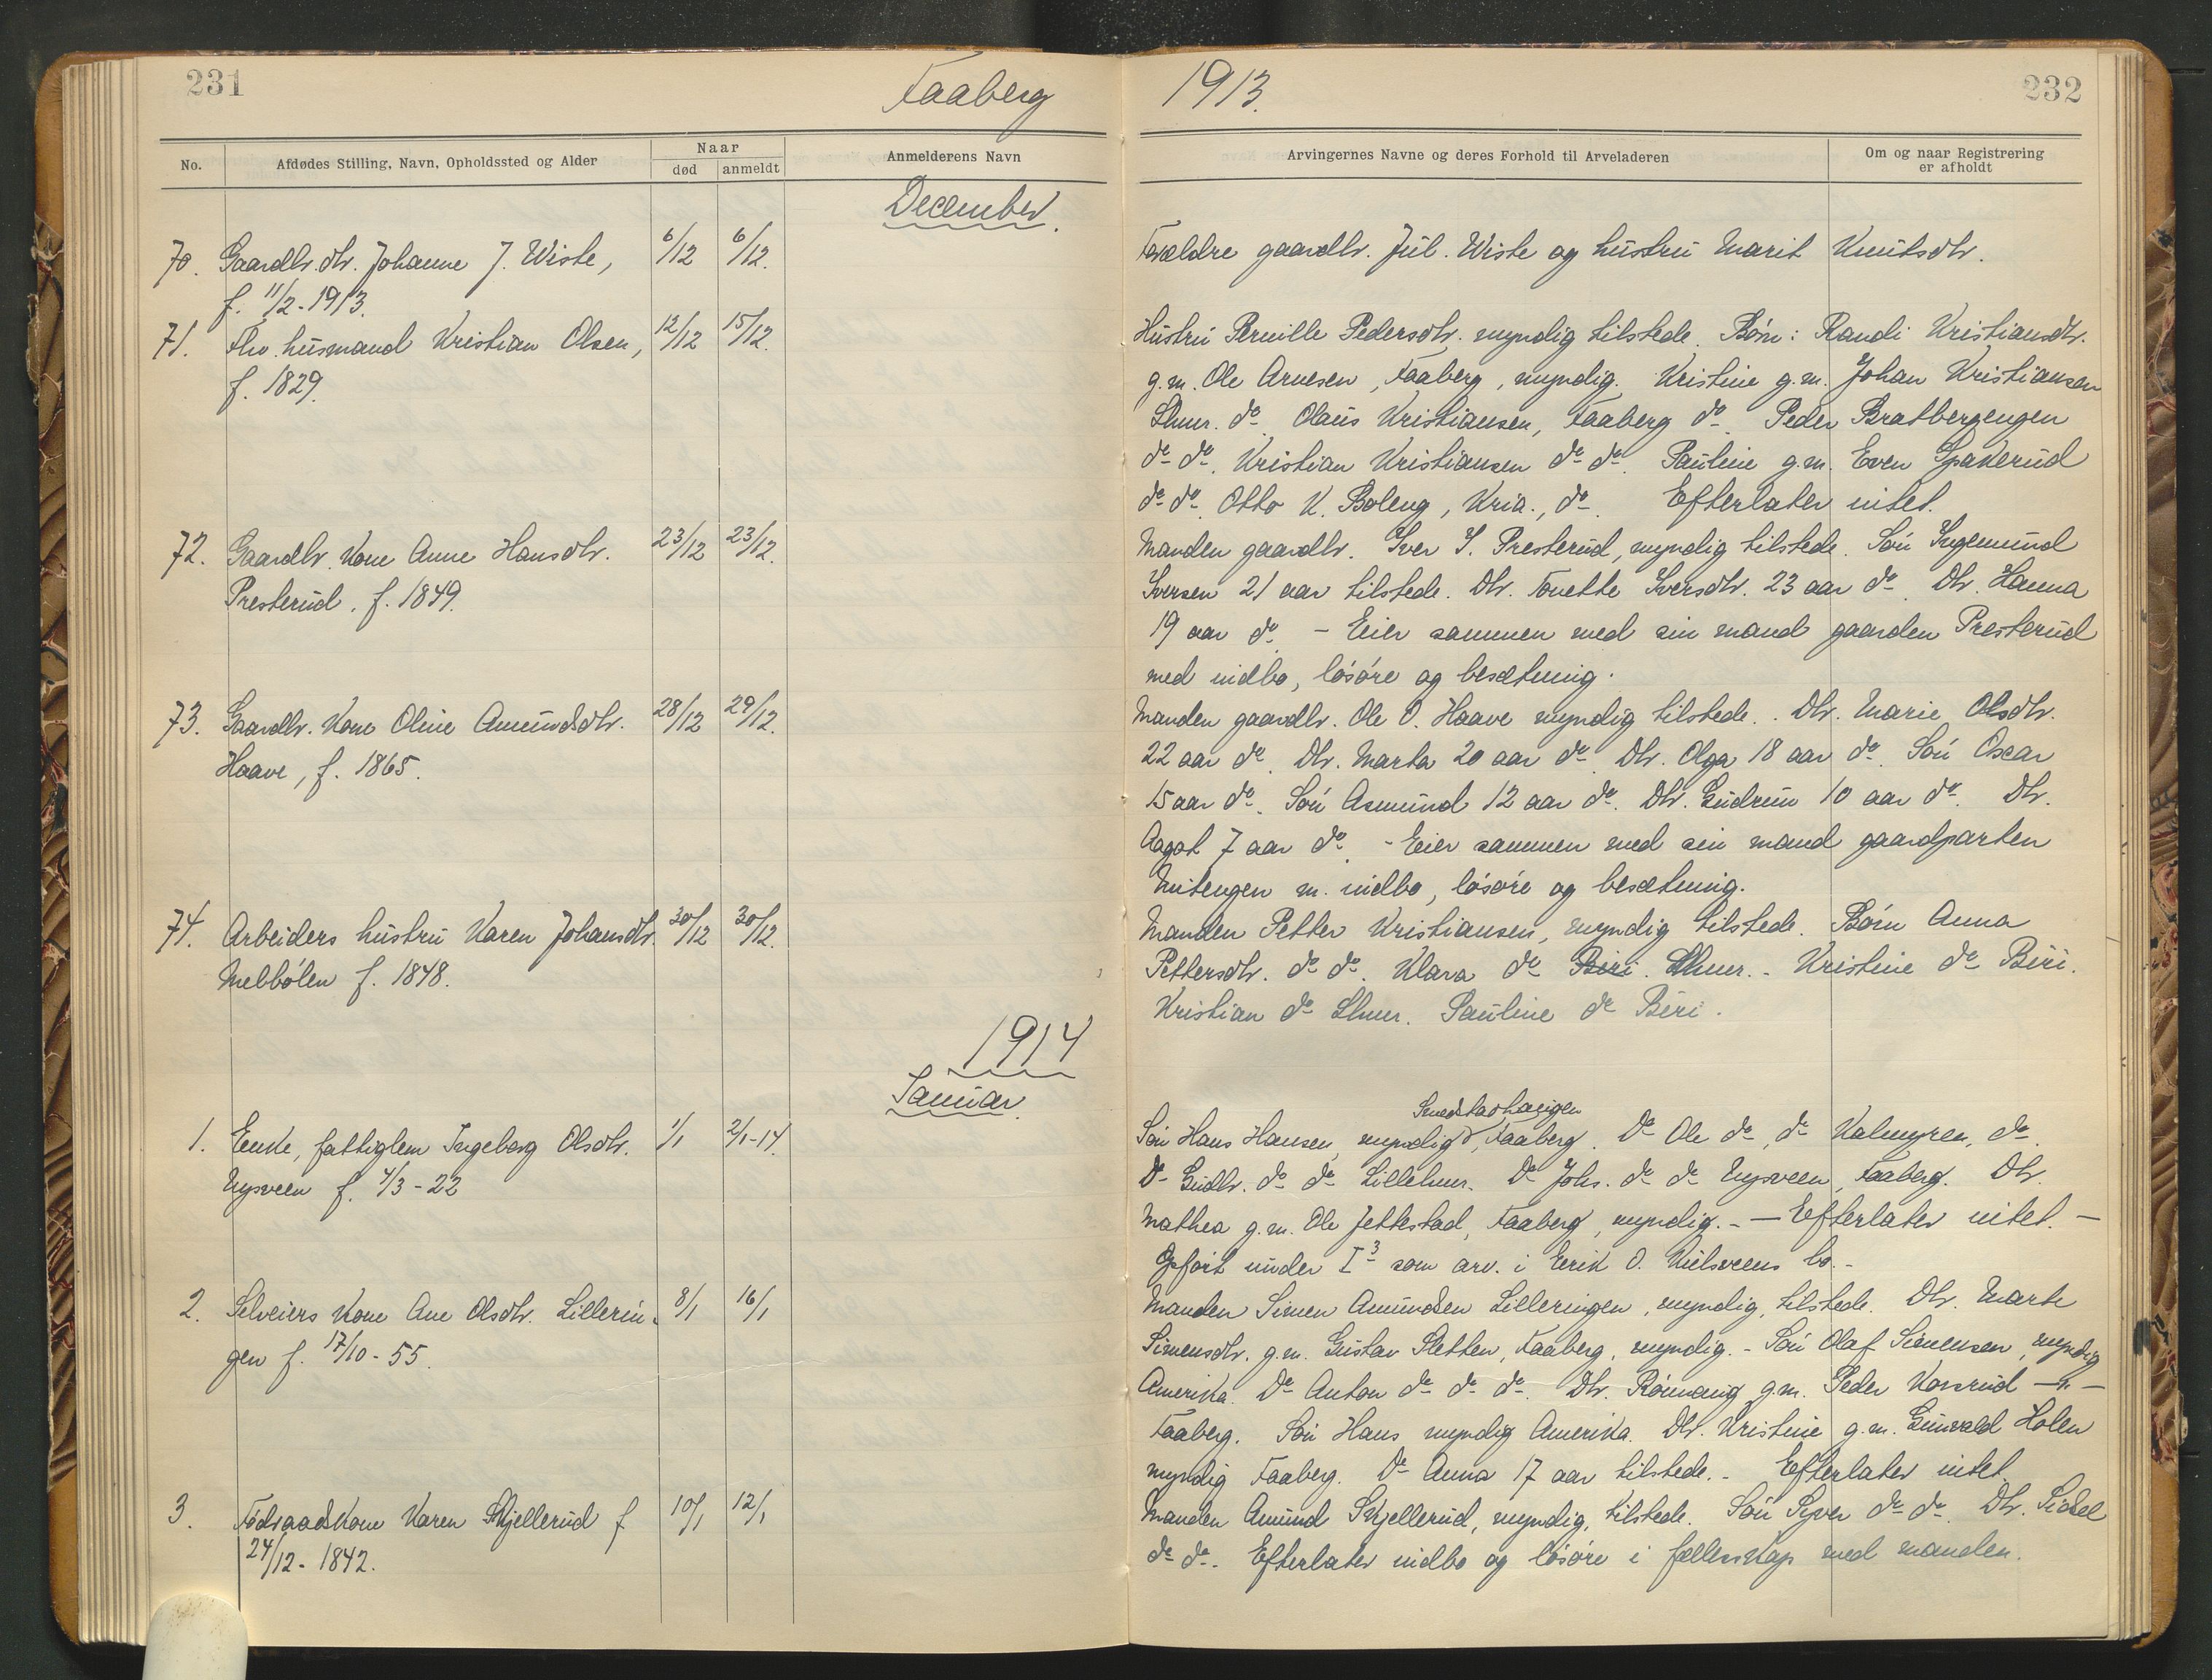 231
Faaberg
No.
Afdødes Stilling, Navn, Opholdssted og Alder
Naar
død
anmeldt
Anmelderens Navn
December.
70. Gaardbr. dtr. Johanne J. Wiste, 6/12 6/12.
f. 11/2-1913.
71. Fhv. husmand Kristian Olsen, 12/12 15/12.
f. 1829.
72. Gaardbr. Kone Anne Hansdtr. 23/12 23/12.
Presterud. f. 1849.
73. Gaardbr. Kone Oline Amundsdtr. 28/12 29/12.
Haave, f. 1865.
74. Arbeiders hustru Karen Johansdtr. 30/12 30/12.
Melbölen f. 1848.
1914
Januar.
1. Enke, fattiglem Ingeborg Olsdtr. 1/1 2/1-14.
Nysveen f. 4/3-22
2. Selveiers Kone Ane Olsdtr. Lillerin- 8/1 16/1
gen f. 17/10-55.
3. Födraadskone Karen Skjellerud f 10/1 12/1
24/12-1842.
1913.
232
Arvingernes Navne og deres Forhold til Arveladeren
Om og naar Registrering
er afholdt
Forældre gaardbr. Jul. Wiste og hustru Marit Knutsdtr.
Hustru Pernille Pedersdtr. myndig tilstede. Börn: Randi Kristiansdtr.
g.m. Ole Arnesen, Faaberg, myndig. Kristine g.m. Johan Kristiansen
Lhmr. do. Olaus Kristiansen, Faaberg do. Peder Bratbergengen
do do. Kristian Kristiansen do do. Pauline g.m. Even Spakerud
do do. Otto K. Boleng, Kria., do. Efterlater intet.
Manden gaardbr. Iver I. Presterud, myndig tilstede. Sön Ingemund
Iversen 21 aar tilstede. Dtr. Tonette Iversdtr. 23 aar do. Dtr. Hanna
19 aar do. - Eier sammen med sin mand gaarden Presterud
med indbo, lösöre og besætning.
Manden gaardbr. Ole O. Haave myndig tilstede. Dtr. Marie Olsdtr.
22 aar do. Dtr. Marta 20 aar do. Dtr. Olga 18 aar do. Sön Oscar
15 aar do. Sön Asmund 12 aar do. Dtr. Gudrun 10 aar do. Dtr.
Aagot 7 aar do. - Eier sammen med sin mand gaardparten
m. indbo, lösöre og besætning.
Manden Petter Kristiansen, myndig tilstede. Börn Anna
Pettersdtr. do do. Klara do Biri. Lhmr. - Kristine do Biri.
Kristian do Lhmr. Pauline do Biri.
Smedstadhaugen
Sön Hans Hansen, myndig, Faaberg. Do Ole do, do Kalmyren, do.
Do Gudbr. do do Lillehmr. Do Johs. do do Nysveen, Faaberg. Dtr.
Mathea g.m. Ole Jettestad, Faaberg, myndig. - — Efterlater intet. —
Opfört under I 3 som arv. i Erik O. bo. -
Manden Simen Amundsen Lilleringen, myndig, tilstede. Dtr. Marte
Simensdtr. g.m. Gustav Sletten, Faaberg, myndig. - Sön Olaf Simensen, myndig
Amerika. Do Anton do do do. Dtr. Rönnaug g.m. Peder Korsrud —"—
Faaberg. Sön Hans myndig Amerika. Dtr. Kristine g.m. Gunvald Holen
myndig Faaberg. Do Anna 17 aar tilstede. - Efterlater intet.
Manden Amund Skjellerud, myndig, tilstede. Sön Syver do do. Dtr. Sidsel
do do. Efterlater indbo og lösöre i fællesskap med manden.